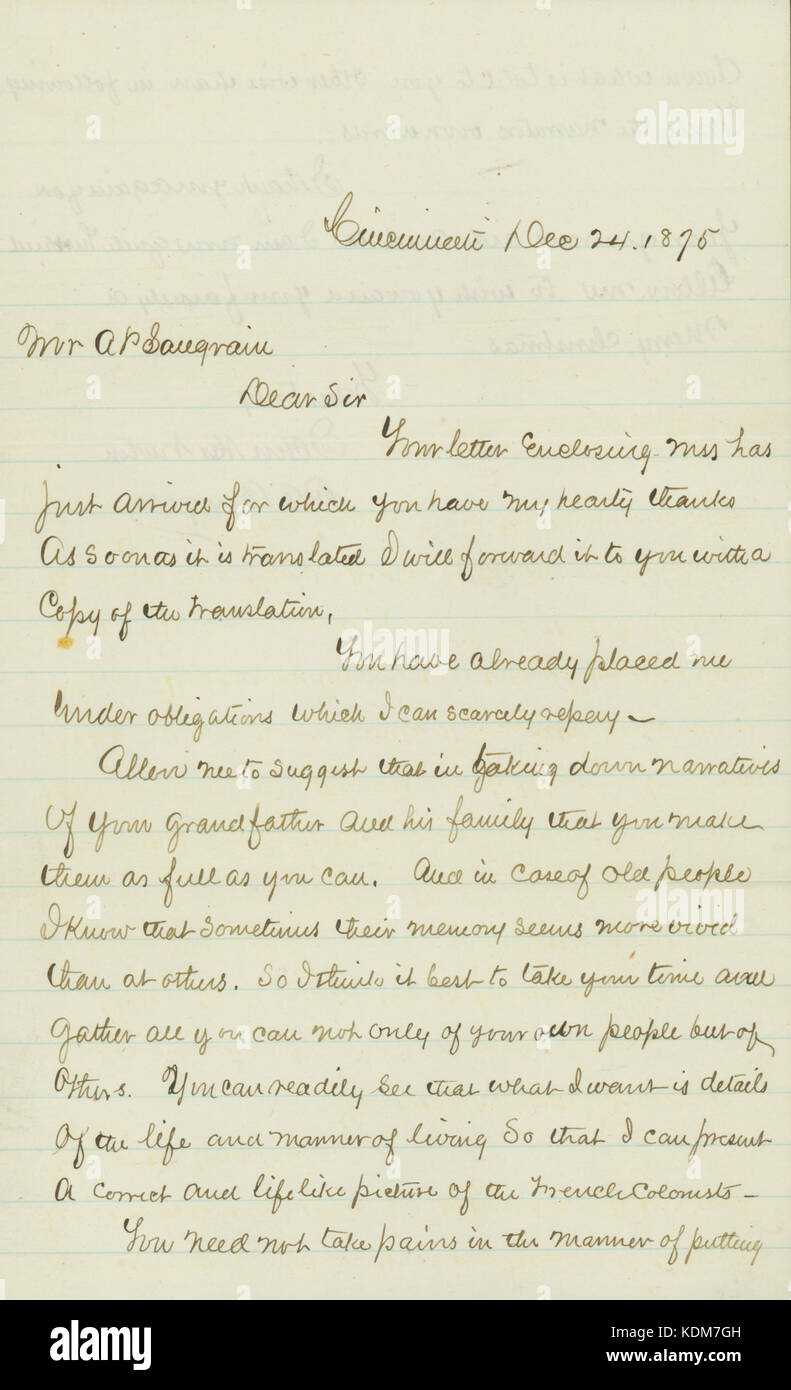 Cincinnati Dec 24. 1875
Mr A P Saugrain
Dear Sir
Your letter Enclosing mss has
just arrived for which you have my hearty thanks
As soon as it is translated I will forward it to you with a
Copy of the translation.
You have already placed me
under obligations which I can scarcely repay –
Allow me to suggest that in taking down narratives
Of your grandfather and his family that you make
them as full as you can. And in case of old people
I know that sometimes their memory seems more vivid
than at others. So I think it best to take your time and
Gather all you can not only of your own people but of
Others. You can readily see that what I want is details
Of the life and manner of living So that I can present
A correct and life like picture of the French Colonists –
You need not take pains in the manner of putting
alamy
Image ID: KDM7GH
www.alamy.com